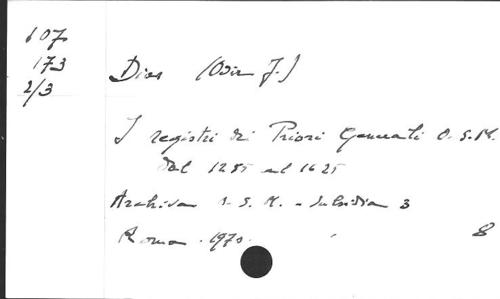 607
173
2/3
Dias (Odir J.)
I registri dei Priori Generali O.S.M.
Dal 1285 al 1625
Archivum O.S.M. - Subsidia 3
Roma . 1970.
8